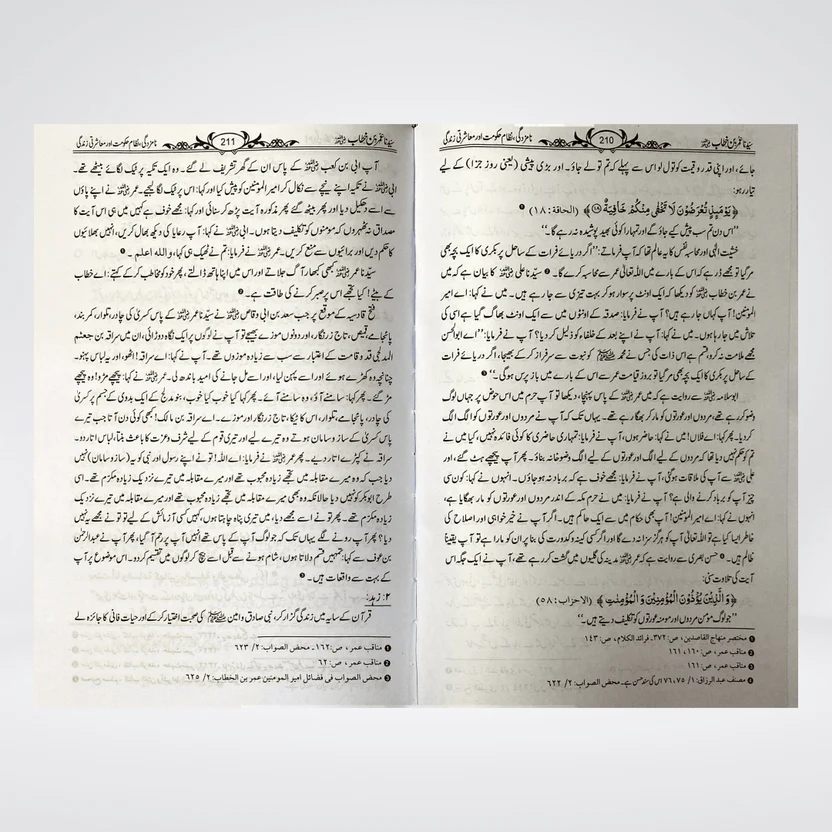 سیدنا عمر بن خطاب رضی اللہ عنہ
210
نامزدگی، نظام حکومت اور معاشرتی زندگی
جائے، اور اپنی قدر و قیمت کو تول لو اس سے پہلے کہ تم تولے جاؤ۔ اور بڑی پیشی (یعنی روز جزا) کے لیے
تیار رہو:
﴿يَوْمَئِذٍ تُعْرَضُوْنَ لَا تَخْفٰى مِنْكُمْ خَافِيَةٌ ﴾ (الحاقة: ١٨) ❶
’’اس دن تم سب پیش کیے جاؤ گے اور تمہارا کوئی بھید پوشیدہ نہ رہے گا۔‘‘
خشیت الٰہی اور محاسبہ نفس کا یہ عالم تھا کہ آپ فرماتے: ’’اگر دریائے فرات کے ساحل پر بکری کا ایک بچہ بھی
مر گیا تو مجھے ڈر ہے کہ اس کے بارے میں اللہ تعالیٰ عمر سے محاسبہ کرے گا۔ ❷ سیدنا علی رضی اللہ عنہ کا بیان ہے کہ میں
نے عمر بن خطاب رضی اللہ عنہ کو دیکھا کہ ایک اونٹ پر سوار ہو کر بہت تیزی سے جا رہے ہیں۔ میں نے کہا: اے امیر
المومنین! آپ کہاں جا رہے ہیں؟ آپ نے فرمایا: صدقہ کے اونٹوں میں سے ایک اونٹ بھاگ گیا ہے اسی کی
تلاش میں جا رہا ہوں۔ میں نے کہا: آپ نے اپنے بعد کے خلفاء کو ذلیل کر دیا؟ آپ نے فرمایا: ’’اے ابوالحسن
مجھے ملامت نہ کرو، قسم ہے اس ذات کی جس نے محمد صلی اللہ علیہ وسلم کو نبوت سے سرفراز کر کے بھیجا، اگر دریائے فرات
کے ساحل پر بکری کا ایک بچہ بھی مر گیا تو بروز قیامت عمر سے اس کے بارے میں باز پرس ہوگی۔‘‘ ❸
ابوسلامہ رضی اللہ عنہ سے روایت ہے کہ میں عمر رضی اللہ عنہ کے پاس پہنچا، دیکھا تو آپ حرم میں اس حوض پر جہاں لوگ
وضو کر رہے تھے، مردوں اور عورتوں کو مار کر بھگا رہے تھے۔ یہاں تک کہ آپ نے مردوں اور عورتوں کو الگ الگ
کر دیا۔ پھر کہا: اے فلاں! میں نے کہا: حاضر ہوں، آپ نے فرمایا: تمہاری حاضری کا کوئی فائدہ نہیں، کیا میں نے
تم کو حکم نہیں دیا تھا کہ مردوں کے لیے الگ اور عورتوں کے لیے الگ وضو خانہ بناؤ۔ پھر آپ پیچھے ہٹ گئے، اور
علی رضی اللہ عنہ سے آپ کی ملاقات ہوگئی، آپ نے فرمایا: مجھے خوف ہے کہ برباد نہ ہو جاؤں۔ انہوں نے کہا: کون سی
چیز آپ کو برباد کرنے والی ہے؟ آپ نے فرمایا: میں نے حرم مکہ کے اندر مردوں اور عورتوں کو مار بھگایا ہے،
انہوں نے کہا: اے امیر المومنین! آپ بھی حکام میں سے ایک حاکم ہیں۔ اگر آپ نے خیر خواہی اور اصلاح کی
خاطر ایسا کیا ہے تو اللہ تعالیٰ آپ کو ہرگز سزا نہ دے گا اور اگر کسی کینہ و کدورت کی بنا پر ان کو مارا ہے تو آپ یقیناً
ظالم ہیں۔ ❹ حسن بصری سے روایت ہے کہ عمر رضی اللہ عنہ مدینہ کی گلیوں میں گشت کر رہے تھے، آپ نے ایک جگہ اس
آیت کی تلاوت سنی:
﴿وَالَّذِيْنَ يُؤْذُوْنَ الْمُؤْمِنِيْنَ وَالْمُؤْمِنٰتِ﴾ (الاحزاب: ٥٨)
’’جو لوگ مومن مردوں اور مومنہ عورتوں کو تکلیف دیتے ہیں۔‘‘
❶ مختصر منهاج القاصدین، ص: ٣٧٢، فرائد الکلام، ص: ١٤٣
❷ مناقب عمر، ص: ١٦٠، ١٦١
❸ مناقب عمر، ص: ١٦١
❹ مصنف عبد الرزاق: ١/ ٧٥، ٧٦ اس کی سند حسن ہے۔ محض الصواب: ٢/ ٦٢٢
سیدنا عمر بن خطاب رضی اللہ عنہ
211
نامزدگی، نظام حکومت اور معاشرتی زندگی
آپ ابی بن کعب رضی اللہ عنہ کے پاس ان کے گھر تشریف لے گئے۔ وہ ایک تکیہ پر ٹیک لگائے بیٹھے تھے۔
ابی رضی اللہ عنہ نے تکیہ اپنے نیچے سے نکال کر امیر المومنین کو پیش کیا اور کہا: اس پر ٹیک لگا لیجیے۔ عمر رضی اللہ عنہ نے اپنے پاؤں
سے اسے دھکیل دیا اور پھر بیٹھ گئے پھر مذکورہ آیت پڑھ کر سنائی اور کہا: مجھے خوف ہے کہیں میں ہی اس آیت کا
مصداق نہ ٹھہروں کہ مومنوں کو تکلیف دیتا ہوں۔ ابی رضی اللہ عنہ نے کہا: آپ رعایا کی دیکھ بھال کریں، انہیں بھلائیوں
کا حکم دیں اور برائیوں سے منع کریں۔ عمر رضی اللہ عنہ نے فرمایا: تم نے ٹھیک ہی کہا، واللہ اعلم۔ ❶
سیدنا عمر رضی اللہ عنہ کبھی کبھار آگ جلاتے اور اس میں اپنا ہاتھ ڈالتے، پھر خود کو مخاطب کر کے کہتے: اے خطاب
کے بیٹے! کیا تجھے اس پر صبر کرنے کی طاقت ہے۔ ❷
فتح قادسیہ کے موقع پر جب سعد بن ابی وقاص رضی اللہ عنہ نے سیدنا عمر رضی اللہ عنہ کے پاس کسریٰ کی چادر، تلوار، کمر بند،
پائجامے، قمیص، تاج زرنگار، اور دونوں موزے بھیجے تو آپ نے لوگوں پر ایک نگاہ دوڑائی، ان میں سراقہ بن جعشم
المدلجی قد و قامت کے اعتبار سے سب سے زیادہ موزوں تھے۔ آپ نے کہا: اے سراقہ! اٹھو، اور یہ لباس پہنو۔
چنانچہ وہ کھڑے ہوئے اور اسے پہن لیا، اور اسے مل جانے کی امید باندھ لی۔ عمر رضی اللہ عنہ نے کہا: پیچھے مڑو! وہ پیچھے
مڑ گئے۔ پھر کہا: سامنے آؤ، وہ سامنے آئے۔ پھر کہا: کیا خوب کیا خوب، بنو مدلج کے ایک بدوی کے جسم پر کسریٰ
کی چادر، پائجامے، تلوار، اس کا پٹکا، تاج زرنگار اور موزے۔ اے سراقہ بن مالک! کبھی کوئی دن آتا جب تیرے
پاس کسریٰ کے ساز و سامان ہوتے تو وہ تیرے لیے اور تیری قوم کے لیے شرف و عزت کا باعث بنتا، لباس اتار دو۔
سراقہ نے کپڑے اتار دیے۔ پھر عمر رضی اللہ عنہ نے فرمایا: اے اللہ! تو نے اپنے رسول اور نبی کو یہ (ساز و سامان) نہیں
دیا جب کہ وہ میرے مقابلہ میں تجھے زیادہ محبوب تھے اور میرے مقابلہ میں تیرے نزدیک زیادہ مکرم تھے۔ اسی
طرح ابوبکر کو نہیں دیا حالانکہ وہ بھی میرے مقابل میں تجھے زیادہ محبوب تھے اور میرے مقابلہ میں تیرے نزدیک
زیادہ مکرم تھے۔ پھر تو نے اسے مجھے دیا، میں تیری پناہ چاہتا ہوں، کہیں کسی آزمائش کے لیے تو تو نے مجھے یہ نہیں
دیا؟ پھر آپ رونے لگے یہاں تک کہ جو لوگ آپ کے پاس تھے انہیں آپ پر رحم آ گیا، پھر آپ نے عبدالرحمٰن
بن عوف سے کہا: تمہیں قسم دلاتا ہوں، شام ہونے سے قبل اسے بیچ کر لوگوں میں تقسیم کر دو۔ اس موضوع پر آپ
کے بہت سے واقعات ہیں۔ ❸
۲: زہد:
قرآن کے سایہ میں زندگی گزار کر، نبی صادق و امین صلی اللہ علیہ وسلم کی صحبت اختیار کر کے اور حیات فانی کا جائزہ لے
❶ مناقب عمر، ص: ١٦٢۔ محض الصواب: ٢/ ٦٢٣
❷ مناقب عمر، ص: ٦٢
❸ محض الصواب فی فضائل امیر المومنین عمر بن الخطاب: ٢/ ٦٢٥